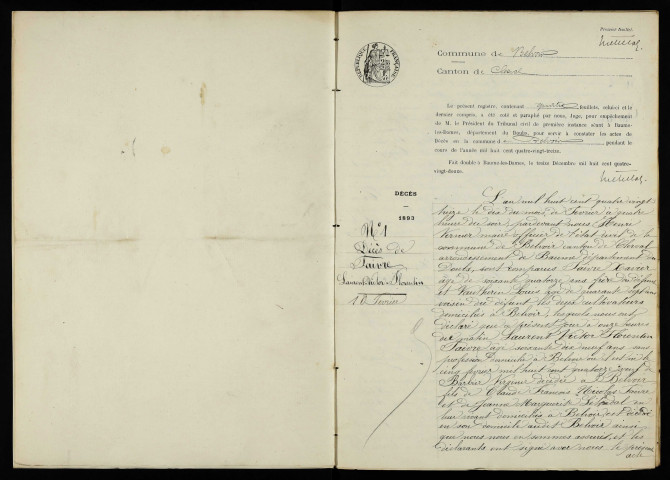 Premier Feuillet.
Commune de Belvoir
Canton de Clerval
RÉPUBLIQUE FRANÇAISE
Le présent registre, contenant quatre feuillets, celui-ci et le
dernier compris, a été coté et paraphé par nous, Juge, pour empêchement
de M. le Président du Tribunal civil de première instance séant à Baume-
les-Dames, département du Doubs, pour servir à constater les actes de
Décès en la commune de Belvoir pendant le
cours de l'année mil huit cent quatre-vingt-treize.
Fait double à Baume-les-Dames, le treize Décembre mil huit cent quatre-
vingt-douze.
DÉCÈS
1893
N° 1
Décès de
Faivre
Laurent Victor Florentin
10 Février
L'an mil huit cent quatre vingt
treize le dix du mois de Février à quatre
heures du soir, pardevant nous Henri
Vernier maire officier de l'état civil de la
commune de Belvoir canton de Clerval
arrondissement de Baume département du
Doubs, sont comparus Faivre Xavier
âgé de soixante quatorze ans frère du défunt
et Louis âgé de quarante ans
voisin du défunt les deux cultivateurs
domiciliés à Belvoir, lesquels nous ont
déclaré que le présent jour à onze heures
du matin Laurent Victor Florentin
Faivre âgé soixante dix neuf ans sans
profession domicilié à Belvoir où il est né le
cinq mil huit cent quatorze veuf de
décédée à Belvoir
fils de Claude François Nicolas Faivre
et de Jeanne Marguerite en
leur vivant domiciliés à Belvoir est décédé
en son domicile audit Belvoir ainsi
que nous nous en sommes assurés, et les
déclarants ont signé avec nous le présent
acte